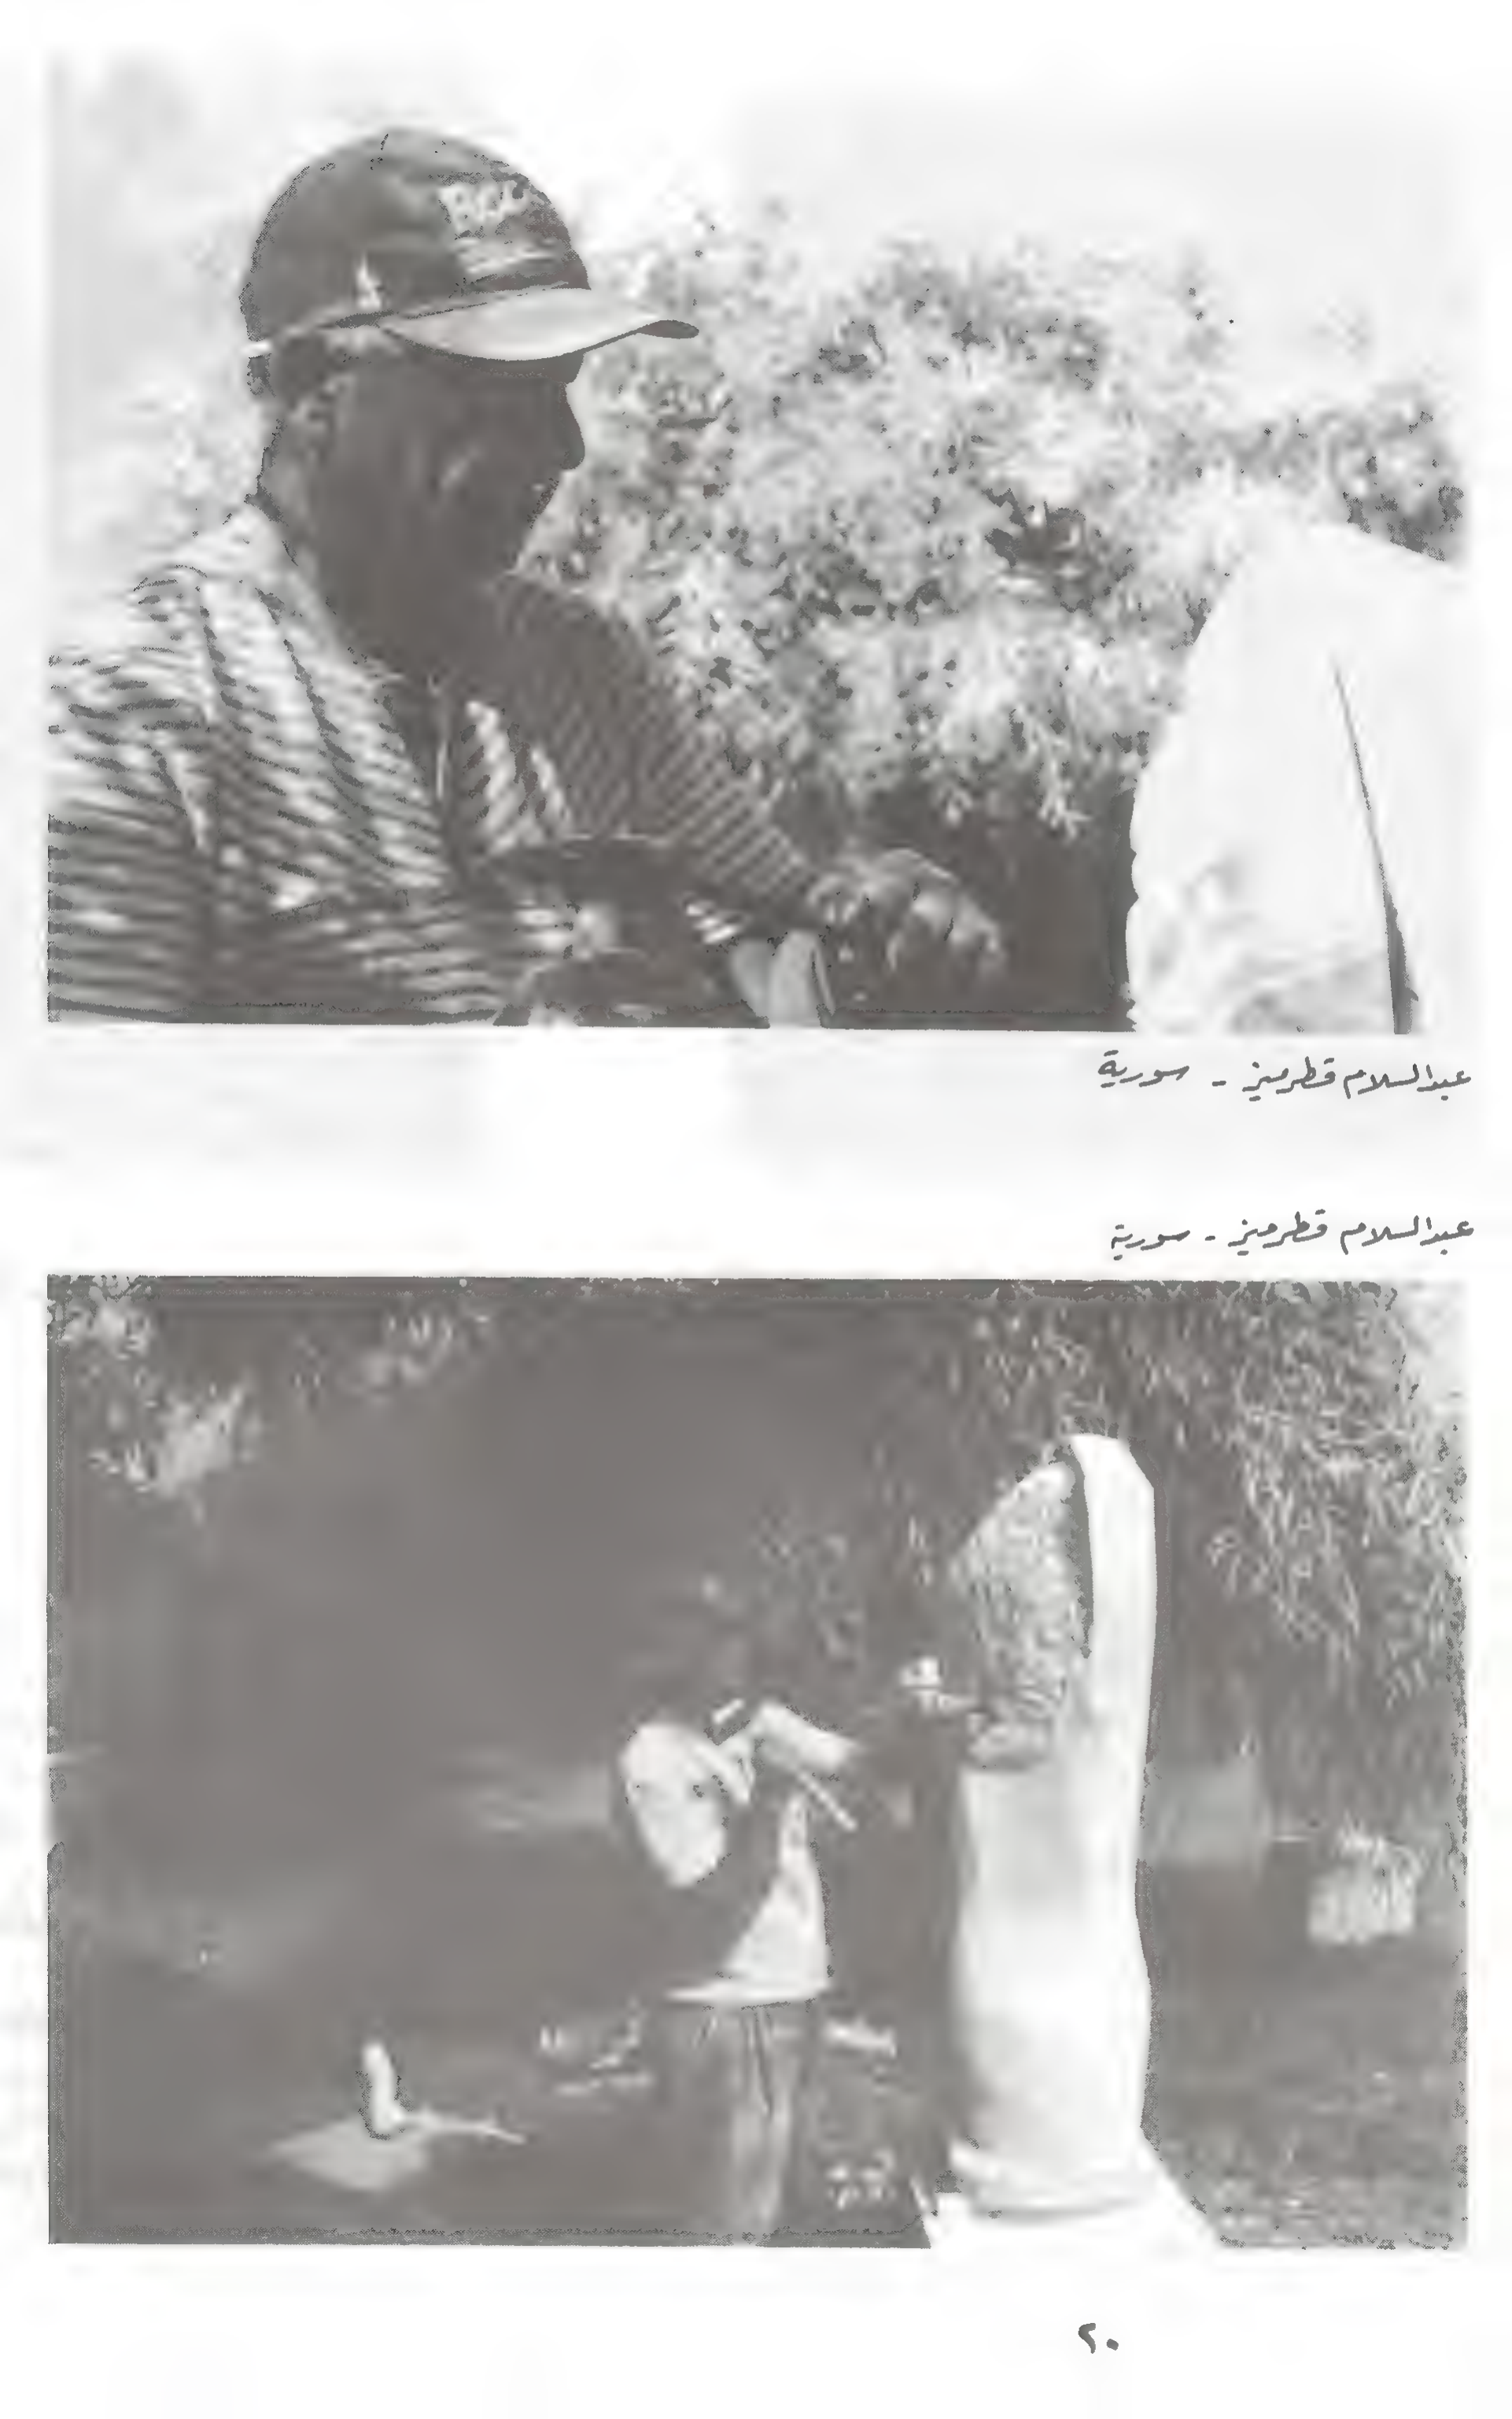 عبدالسلام قطرميز - سورية
عبدالسلام قطرميز - سورية
٢٠